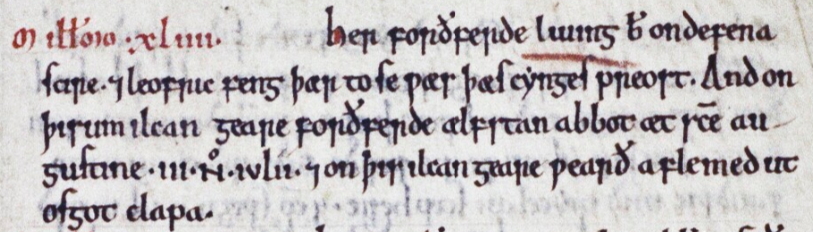 Millo̅mo .xlvi. her forðferde liuing b̅ ondefena
scire. ⁊ leofric feng þær to se wæs þæs cẏnges preost. And on
þisum ilcan geare forðferde ælfstan abbot æt sc̅e au
gustine .iii. Nº. iulii. ⁊ on þis ilcan geare wearð aflemed ut
osgot clapa.